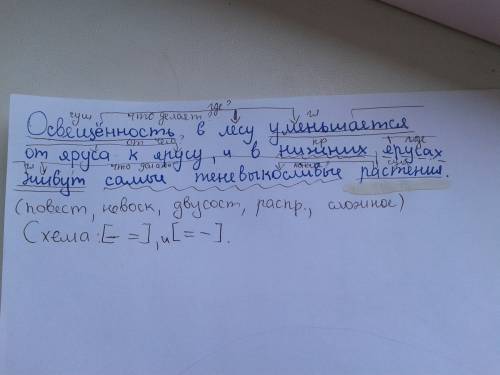 сущ что делает где? гл
Освещённость, в лесу уменьшается
от чего где
от яруса к ярусу, и в нижних ярусах
гл что делают какие? сущ
живут самые теневыносливые растения.
(повест, невоск, двусост, распр., сложное)
Схема: [– =], и [= –].